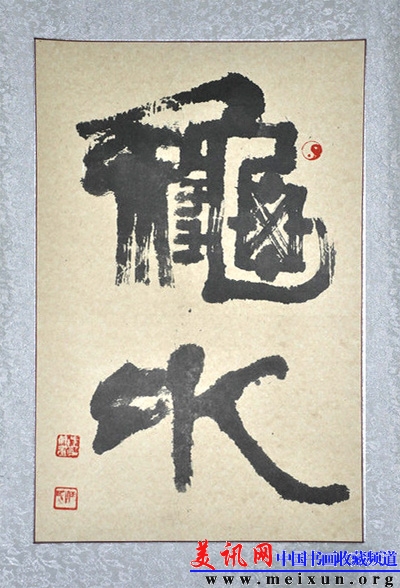 龜
水
美讯网 中国书画收藏频道
www.meixun.org